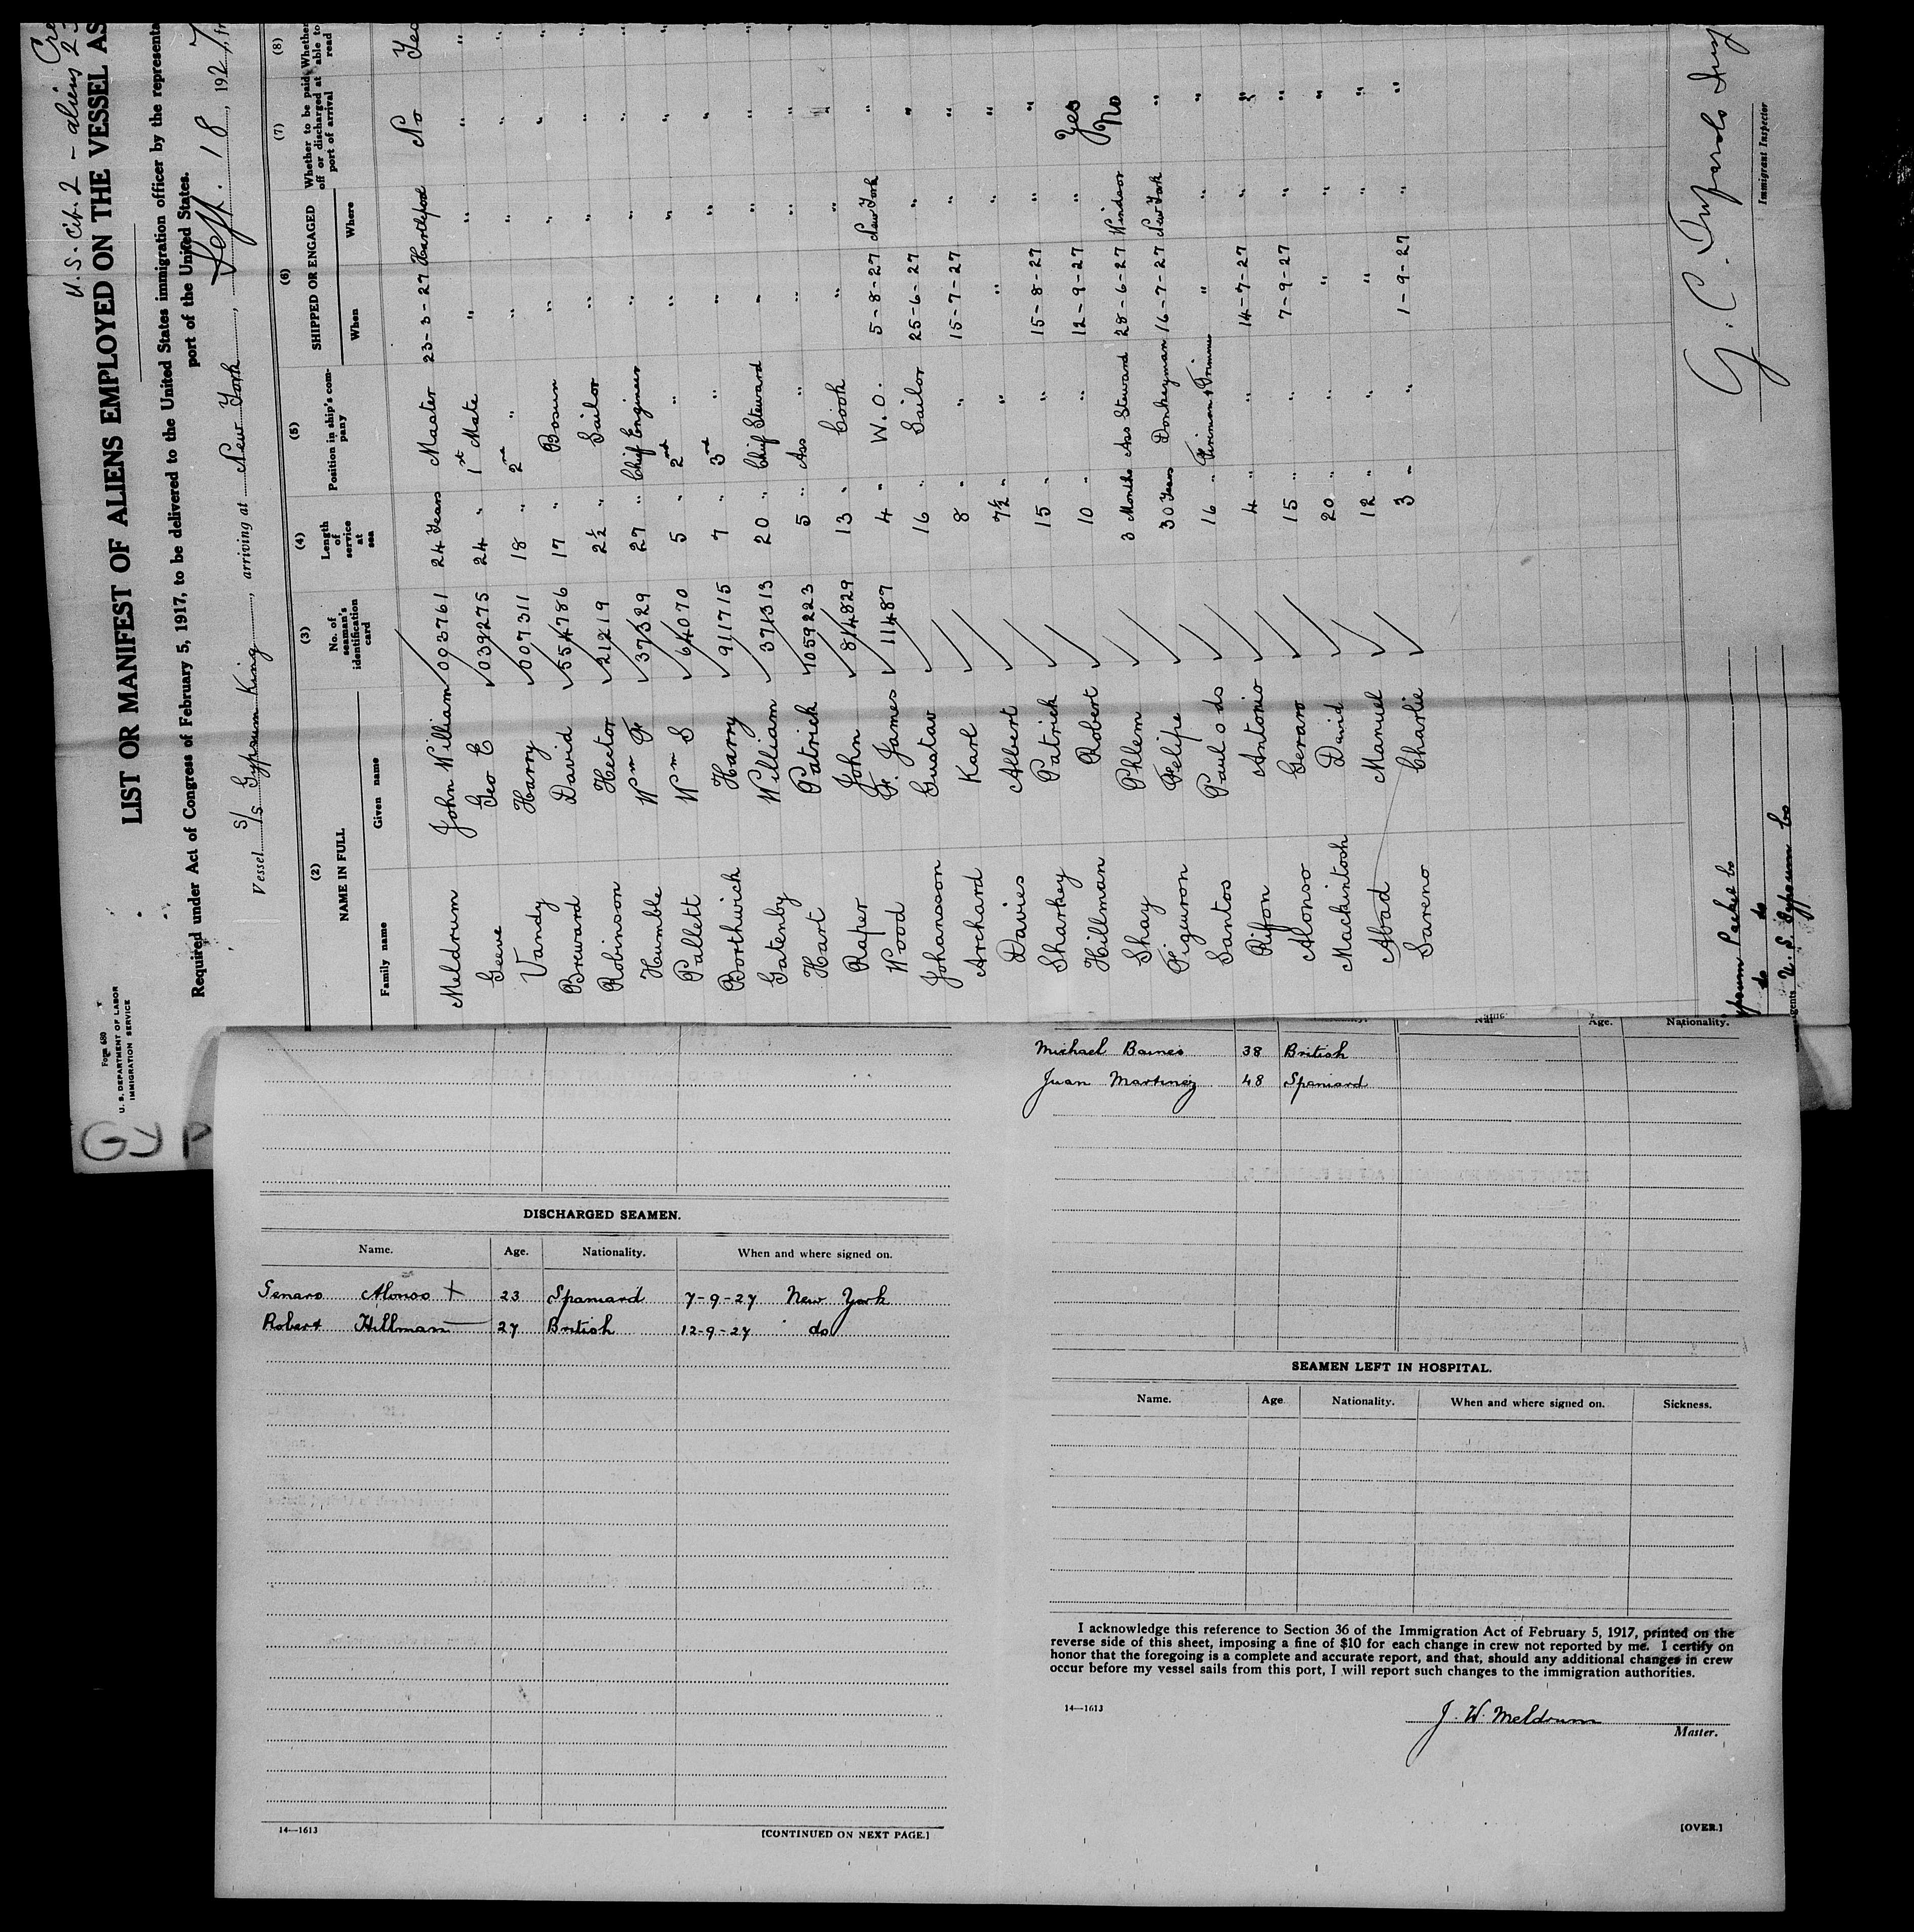 Cre
U.S. Cit. 2 - aliens 23
LIST OR MANIFEST OF ALIENS EMPLOYED ON THE VESSEL AS
Required under Act of Congress of February 5, 1917, to be delivered to the United States immigration officer by the representa
port of the United States.
Vessel S/S Gypsum King, arriving at New York, Sept. 18, 1927, fr
Form 680
U. S. DEPARTMENT OF LABOR
IMMIGRATION SERVICE
GYP
(2) (3) (4) (5) (6) (7) (8)
NAME IN FULL No. of seaman's identification card Length of service at sea Position in ship's company SHIPPED OR ENGAGED Whether to be paid off or discharged at port of arrival Whether able to read
Family name Given name When Where
Meldrum John William 093761 24 Years Master 23-3-27 Hartlepool No Yes
Geeve Geo E 039275 24 " 1st Mate " " " "
Vandy Harry 007311 18 " 2nd " " " " "
Breward David 554786 17 " Bosun " " " "
Robinson Hector 21219 2½ " Sailor " " " "
Humble Wm F 37329 27 " Chief Engineer " " " "
Pallett Wm S 64070 5 " 2nd " " " " "
Borthwick Harry 911715 7 " 3rd " " " " "
Gatenby William 371313 20 " Chief Steward " " " "
Hart Patrick 1059223 5 " Ass " " " " "
Raper John 814829 13 " Cook " " " "
Wood F. James 11487 4 " W.O. 5-8-27 New York " "
Johansson Gustav 16 " Sailor 25-6-27 " " "
Archard Karl 8 " " 15-7-27 " " "
Davies Albert 7½ " " " " " "
Sharkey Patrick 15 " " 15-8-27 " " "
Hillman Robert 10 " " 12-9-27 " Yes
Shay Phlem 3 Months Ass Steward 28-6-27 Windsor No
Figueron Felipe 30 Years Donkeyman 16-7-27 New York "
Santos Paul o ds 16 " Fireman & Trimmer " " "
Riffon Antonio 4 " " 14-7-27 " "
Alonso Genaro 15 " " 7-9-27 " "
Mackintosh David 20 " " " " "
Abad Manuel 12 " " " " "
Sareno Charlie 3 " " 1-9-27 " "
Packet Co
do do
U. S. Gypsum Co
Immigrant Inspector
Name. Age. Nationality.
Michael Baines 38 British
Juan Martinez 48 Spaniard
DISCHARGED SEAMEN.
Name. Age. Nationality. When and where signed on.
Genaro Alonso + 23 Spaniard 7-9-27 New York
Robert Hillman 27 British 12-9-27 do
14—1613
[CONTINUED ON NEXT PAGE.]
SEAMEN LEFT IN HOSPITAL.
Name. Age Nationality. When and where signed on. Sickness.
I acknowledge this reference to Section 36 of the Immigration Act of February 5, 1917, printed on the
reverse side of this sheet, imposing a fine of $10 for each change in crew not reported by me. I certify on
honor that the foregoing is a complete and accurate report, and that, should any additional changes in crew
occur before my vessel sails from this port, I will report such changes to the immigration authorities.
14—1613
J. W. Meldrum
Master.
[OVER.]